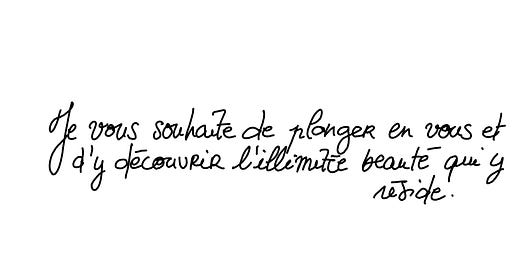 Je vous souhaite de plonger en vous et
d'y découvrir l'illimitée beauté qui y
réside.